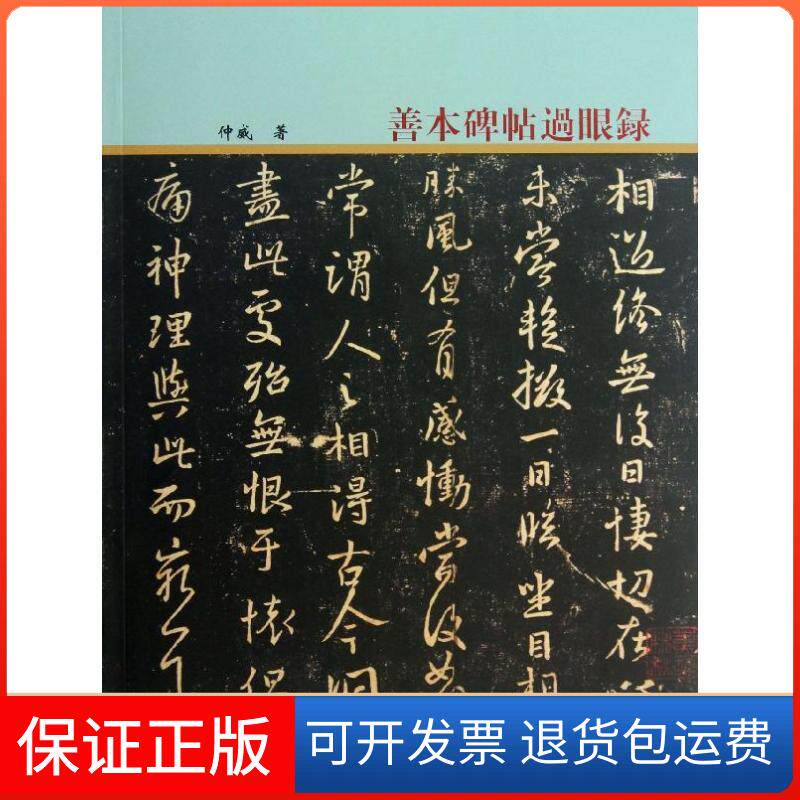 善本碑帖過眼録
仲威 著
相過終無復日悽切在
未嘗暫撥一日臨坐目想
勝風但有感慟當復如
常謂人之相得古今洞
盡此處殆無恨于懷但
痛神理與此而窮
保证正版
可开发票 退货包运费